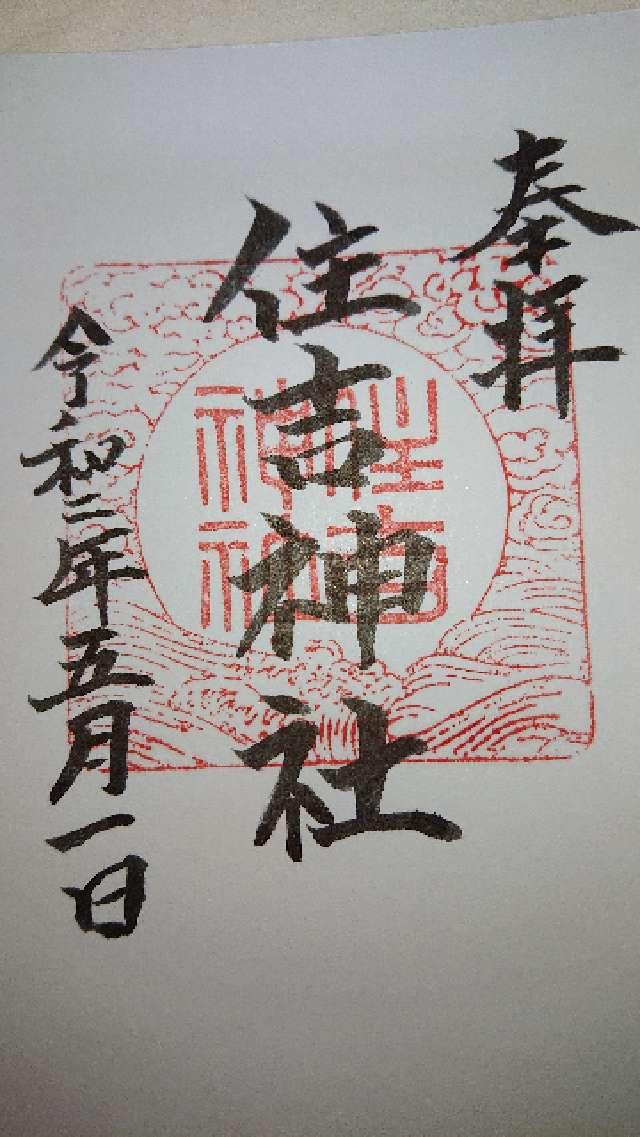 奉拝
住吉神社
住吉神社
令和二年五月一日